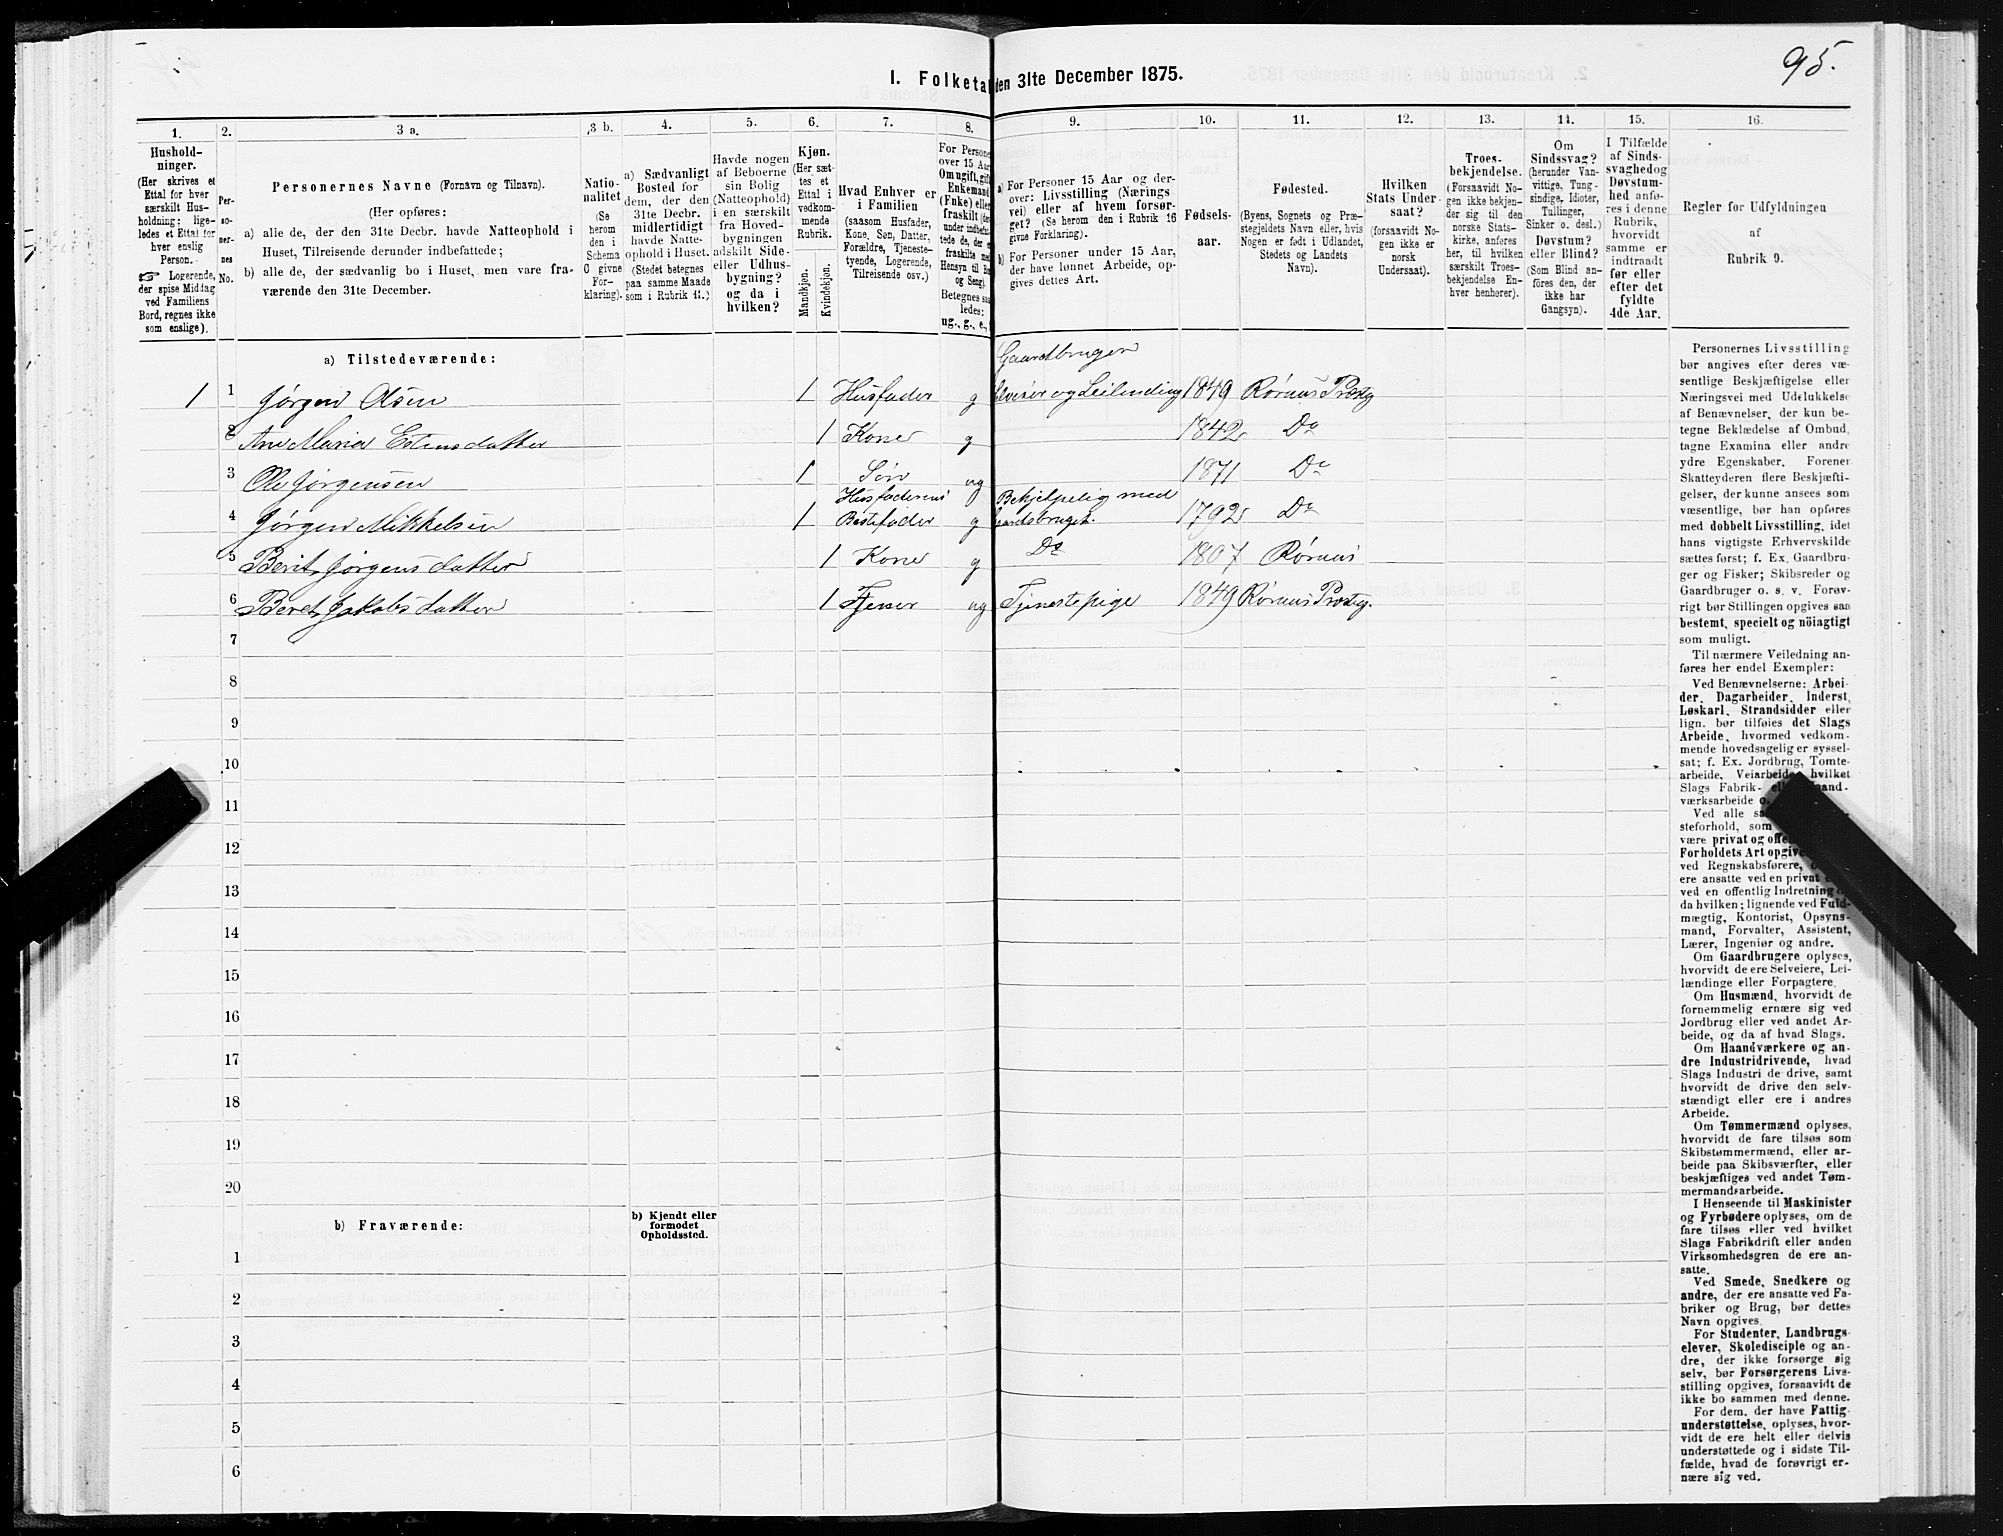 95.
I. Folketal den 31te December 1875.
1.
2.
3 a.
3 b.
4.
5.
6.
7.
8.
9.
10.
11.
12.
13.
14.
15.
16.
Hushold-
ninger.
(Her skrives et
Ettal for hver
særskilt Hus-
holdning; lige-
ledes et Ettal for
hver enslig
Person.
☞ Logerende,
der spise Middag
ved Familiens
Bord, regnes ikke
som enslige).
Per-
so-
ner-
nes
No.
Personernes Navne (Fornavn og Tilnavn).
(Her opføres:
a) alle de, der den 31te Decbr. havde Natteophold i
Huset, Tilreisende derunder indbefattede;
b) alle de, der sædvanlig bo i Huset, men vare fra-
værende den 31te December.
Natio-
nalitet
(Se
herom
den i
Schema
C givne
For-
klaring).
a) Sædvanligt
Bosted for
dem, der den
31te Decbr.
midlertidigt
havde Natte-
ophold i Huset.
(Stedet betegnes
paa samme Maade
som i Rubrik 11.)
Havde nogen
af Beboerne
sin Bolig
(Natteophold)
i en særskilt
fra Hoved-
bygningen
adskilt Side-
eller Udhus-
bygning?
og da i
hvilken?
Kjøn.
(Her sæt-
tes et
Ettal i
vedkom-
mende
Rubrik.
Mandkjøn.
Kvindekjøn.
Hvad Enhver er
i Familien
(saasom Husfader,
Kone, Søn, Datter,
Forældre, Tjeneste-
tyende, Logerende,
Tilreisende osv.)
For Persone
over 15 Aar
Om ugift, gift
Enkemand
(Enke) elle
fraskilt (de
under indbefat
tede de, der e
fraskilte me
Hensyn til Bo
og Seng).
Betegnes saa
ledes:
ug., g., e.,
a) For Personer 15 Aar og der-
over: Livsstilling (Nærings
vei) eller af hvem forsør-
get (Se herom den i Rubrik 16
givne Forklaring).
b) For Personer under 15 Aar,
der have lønnet Arbeide, op-
gives dettes Art.
Fødsels-
aar.
Fødested.
(Byens, Sognets og Præ-
stegjeldets Navn eller, hvis
Nogen er født i Udlandet,
Stedets og Landets
Navn).
Hvilken
Stats Under-
saat?
(forsaavidt No-
gen ikke er
norsk
Undersaat).
Troes-
bekjendelse.
(Forsaavidt No-
gen ikke bekjen-
der sig til den
norske Stats-
kirke, anføres
her, til hvilken
særskilt Troes-
bekjendelse En-
hver henhører).
Om
Sindssvag?
(herunder Van-
vittige, Tung-
sindige, Idioter,
Tullinger,
Sinker o. desl.)
Døvstum?
eller Blind?
(Som Blind an-
føres den, der
ikke har
Gangsyn).
I Tilfælde
af Sinds-
svaghed og
Døvstum-
hed anfø-
res i denne
Rubrik,
hvorvidt
samme er
indtraadt
før eller
efter det
fyldte
4de Aar.
Regler for Udfyldningen
af
Rubrik 9.
a) Tilstedeværende:
Gaardbruger
1 1 Jørgen Olsen 1 Husfader g Selveier og Leilending 1849 Røraas Præstg
2 Ane Maria Estensdatter 1 Kone g 1842 Do
3 Ole Jørgensen 1 Søn ug 1871 Do
Husfaderens Behjelpelig med
4 Jørgen Mikkelsen 1 Bestefader g Gaardsbruget. 1792 Do
5 Berit Jørgensdatter 1 Kone g Do 1807 Røraas
6 Beret Jakobsdatter 1 Tjener ug Tjenestepige 1849 Røraas Præstg.
7
8
9
10
11
12
13
14
15
16
17
18
19
20
b) Fraværende:
b) Kjendt eller
formodet
Opholdssted.
1
2
3
4
5
6
Personernes Livsstilling
bør angives efter deres væ-
sentlige Beskjæftigelse eller
Næringsvei med Udelukkelse
af Benævnelser, der kun be-
tegne Beklædelse af Ombud,
tagne Examina eller andre
ydre Egenskaber. Forener
Skatteyderen flere Beskjæfti-
gelser, der kunne ansees som
væsentlige, bør han opføres
med dobbelt Livsstilling, idet
hans vigtigste Erhvervskilde
sættes først; f. Ex. Gaardbru-
ger og Fisker; Skibsreder og
Gaardbruger o. s. v. Forøv-
rigt bør Stillingen opgives saa
bestemt, specielt og nöiagtigt
som muligt.
Til nærmere Veiledning an-
føres her endel Exempler:
Ved Benævnelserne: Arbei-
der, Dagarbeider, Inderst,
Løskarl, Strandsidder eller
lign. bør tilføies det Slags
Arbeide, hvormed vedkom-
mende hovedsagelig er syssel-
sat; f. Ex. Jordbrug, Tomte-
arbeide, Veiarbeide, hvilket
Slags Fabrik- eller Haand-
værksarbeide o.
Ved alle
steforhold, som
være privat og offe
Forholdets Art opgive
ved Regnskabsførere,
ere ansatte ved en privat
ved en offentlig Indretning
da hvilken; lignende ved Fuld-
mægtig, Kontorist, Opsyns-
mand, Forvalter, Assistent,
Lærer, Ingeniør og andre.
Om Gaardbrugere oplyses,
hvorvidt de ere Selveiere, Lei-
lændinge eller Forpagtere.
Om Husmænd, hvorvidt de
fornemmelig ernære sig ved
Jordbrug eller ved andet Ar-
beide, og da af hvad Slags.
Om Haandværkere og an-
dre Industridrivende, hvad
Slags Industri de drive, samt
hvorvidt de drive den selv-
stændigt eller ere i andres
Arbeide.
Om Tømmermænd oplyses,
hvorvidt de fare tilsøs som
Skibstømmermænd, eller ar-
beide paa Skibsværfter, eller
beskjæftiges ved andet Tøm-
mermandsarbeide.
I Henseende til Maskinister
og Fyrbødere oplyses, om de
fare tilsøs eller ved hvilket
Slags Fabrikdrift eller anden
Virksomhedsgren de ere an-
satte.
Ved Smede, Snedkere og
andre, der ere ansatte ved Fa-
briker og Brug, bør dettes
Navn opgives.
For Studenter, Landbrugs-
elever, Skoledisciple og an-
dre, der ikke forsørge sig
selv, bør Forsørgerens Livs-
stilling opgives, forsaavidt de
ikke bo sammen med denne.
For dem, der have Fattig-
understøttelse, oplyses, hvor-
vidt de ere helt eller delvis
understøttede og i sidste Til-
fælde, hvad de forøvrigt er-
nære sig ved.